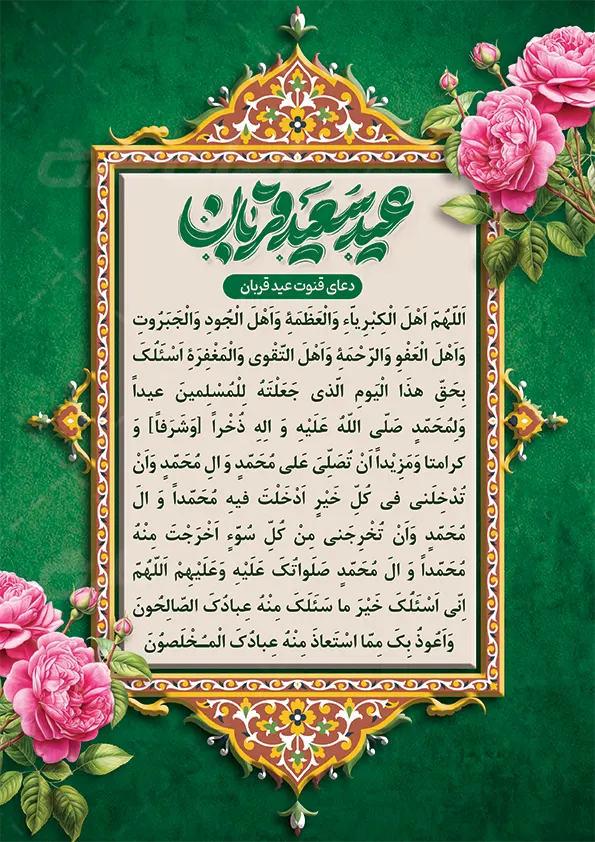 عید سعید قربان
دعای قنوت عید قربان
اَللّهُمَّ اَهْلَ الْکِبْرِیآءِ وَالْعَظَمَةِ وَاَهْلَ الْجُودِ وَالْجَبَرُوتِ
وَاَهْلَ الْعَفْوِ وَالرَّحْمَةِ وَاَهْلَ التَّقْوی وَالْمَغْفِرَةِ اَسْئَلُکَ
بِحَقِّ هذَا الْیَومِ الَّذی جَعَلْتَهُ لِلْمُسْلِمینَ عیداً
وَلِمُحَمَّدٍ صَلَّی اللّهُ عَلَیْهِ و الِهِ ذُخْراً [وَشَرَفاً] وَ
کرامتا وَمَزِیْداً اَنْ تُصَلِّیَ عَلی مُحَمَّدٍ وَ الِ مُحَمَّدٍ وَاَنْ
تُدْخِلَنی فی کُلِّ خَیْرٍ اَدْخَلْتَ فیهِ مُحَمَّداً وَ الَ
مُحَمَّدٍ وَاَنْ تُخْرِجَنی مِنْ کُلِّ سُوَّءٍ اَخْرَجْتَ مِنْهُ
مُحَمَّداً وَ الَ مُحَمَّدٍ صَلَواتُکَ عَلَیْهِ وَعَلَیْهِمْ اَللّهُمَّ
اِنّی اَسْئَلُکَ خَیْرَ ما سَئَلَکَ مِنْهُ عِبادُکَ الصّالِحُونَ
وَاَعُوذُ بِکَ مِمَّا اسْتَعاذَ مِنْهُ عِبادُکَ الْمُـخْلَصوُنَ